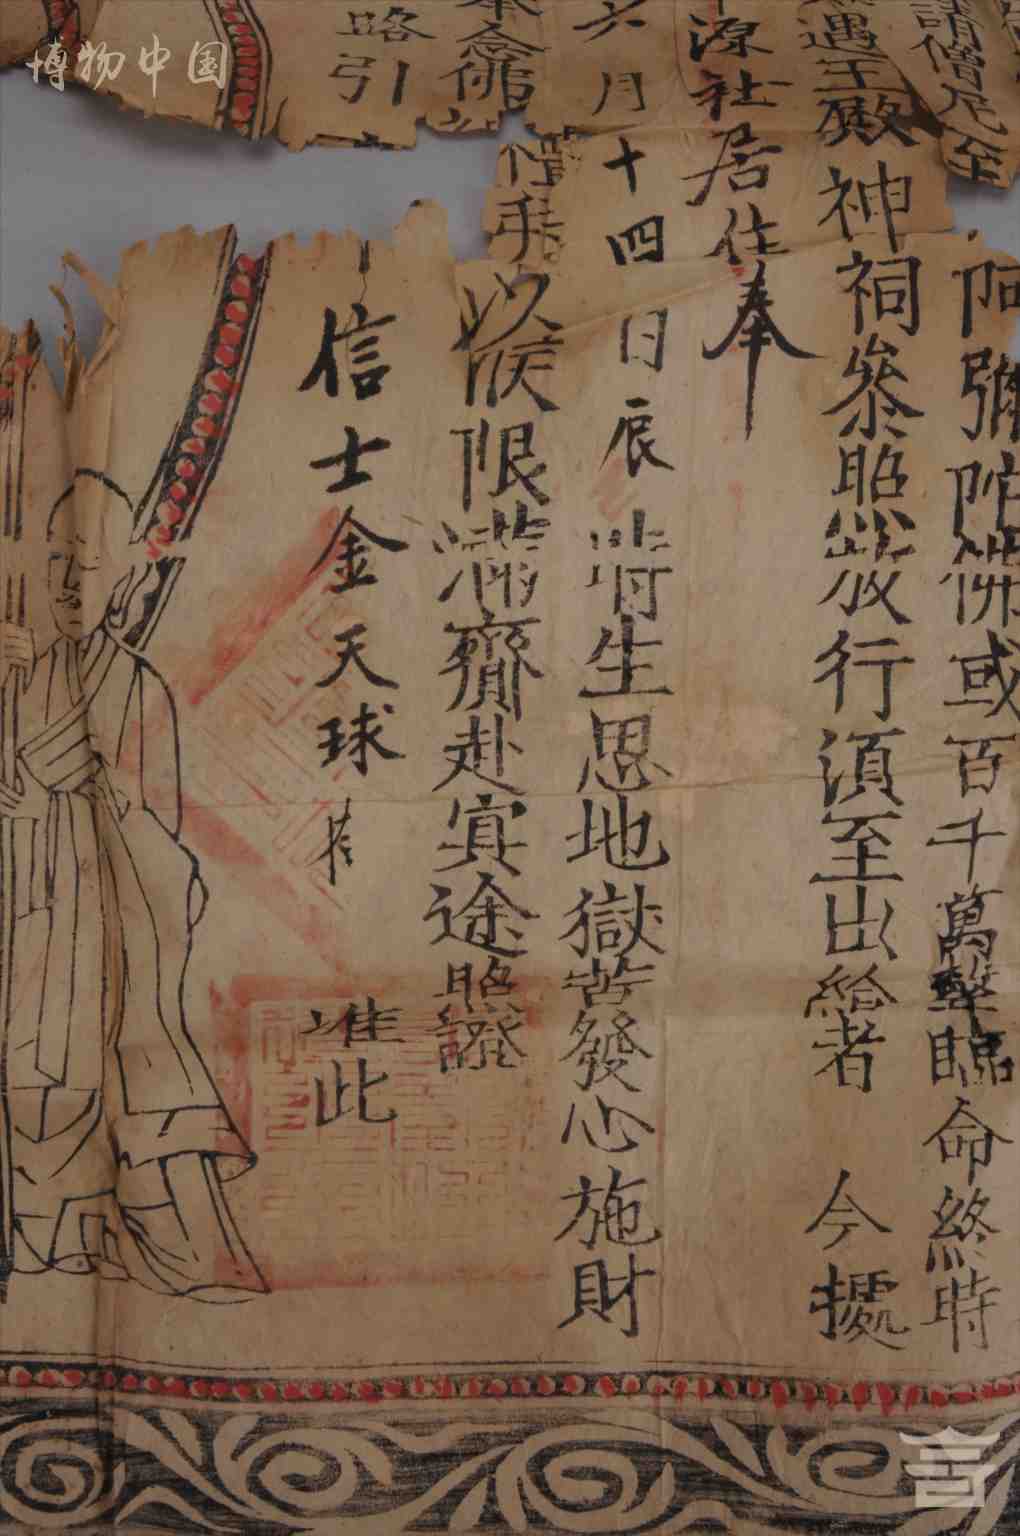 請僧尼至
阿彌陀佛或百千萬聲臨命終時
遇王殿神祠叅照放行須至出給者 今據
源社居住奉
六月十四日辰時生思地獄苦發心施財
奉念佛
惟恐
次候限滿齎赴㝠途照證
路引
信士金天球 准此
博物中国